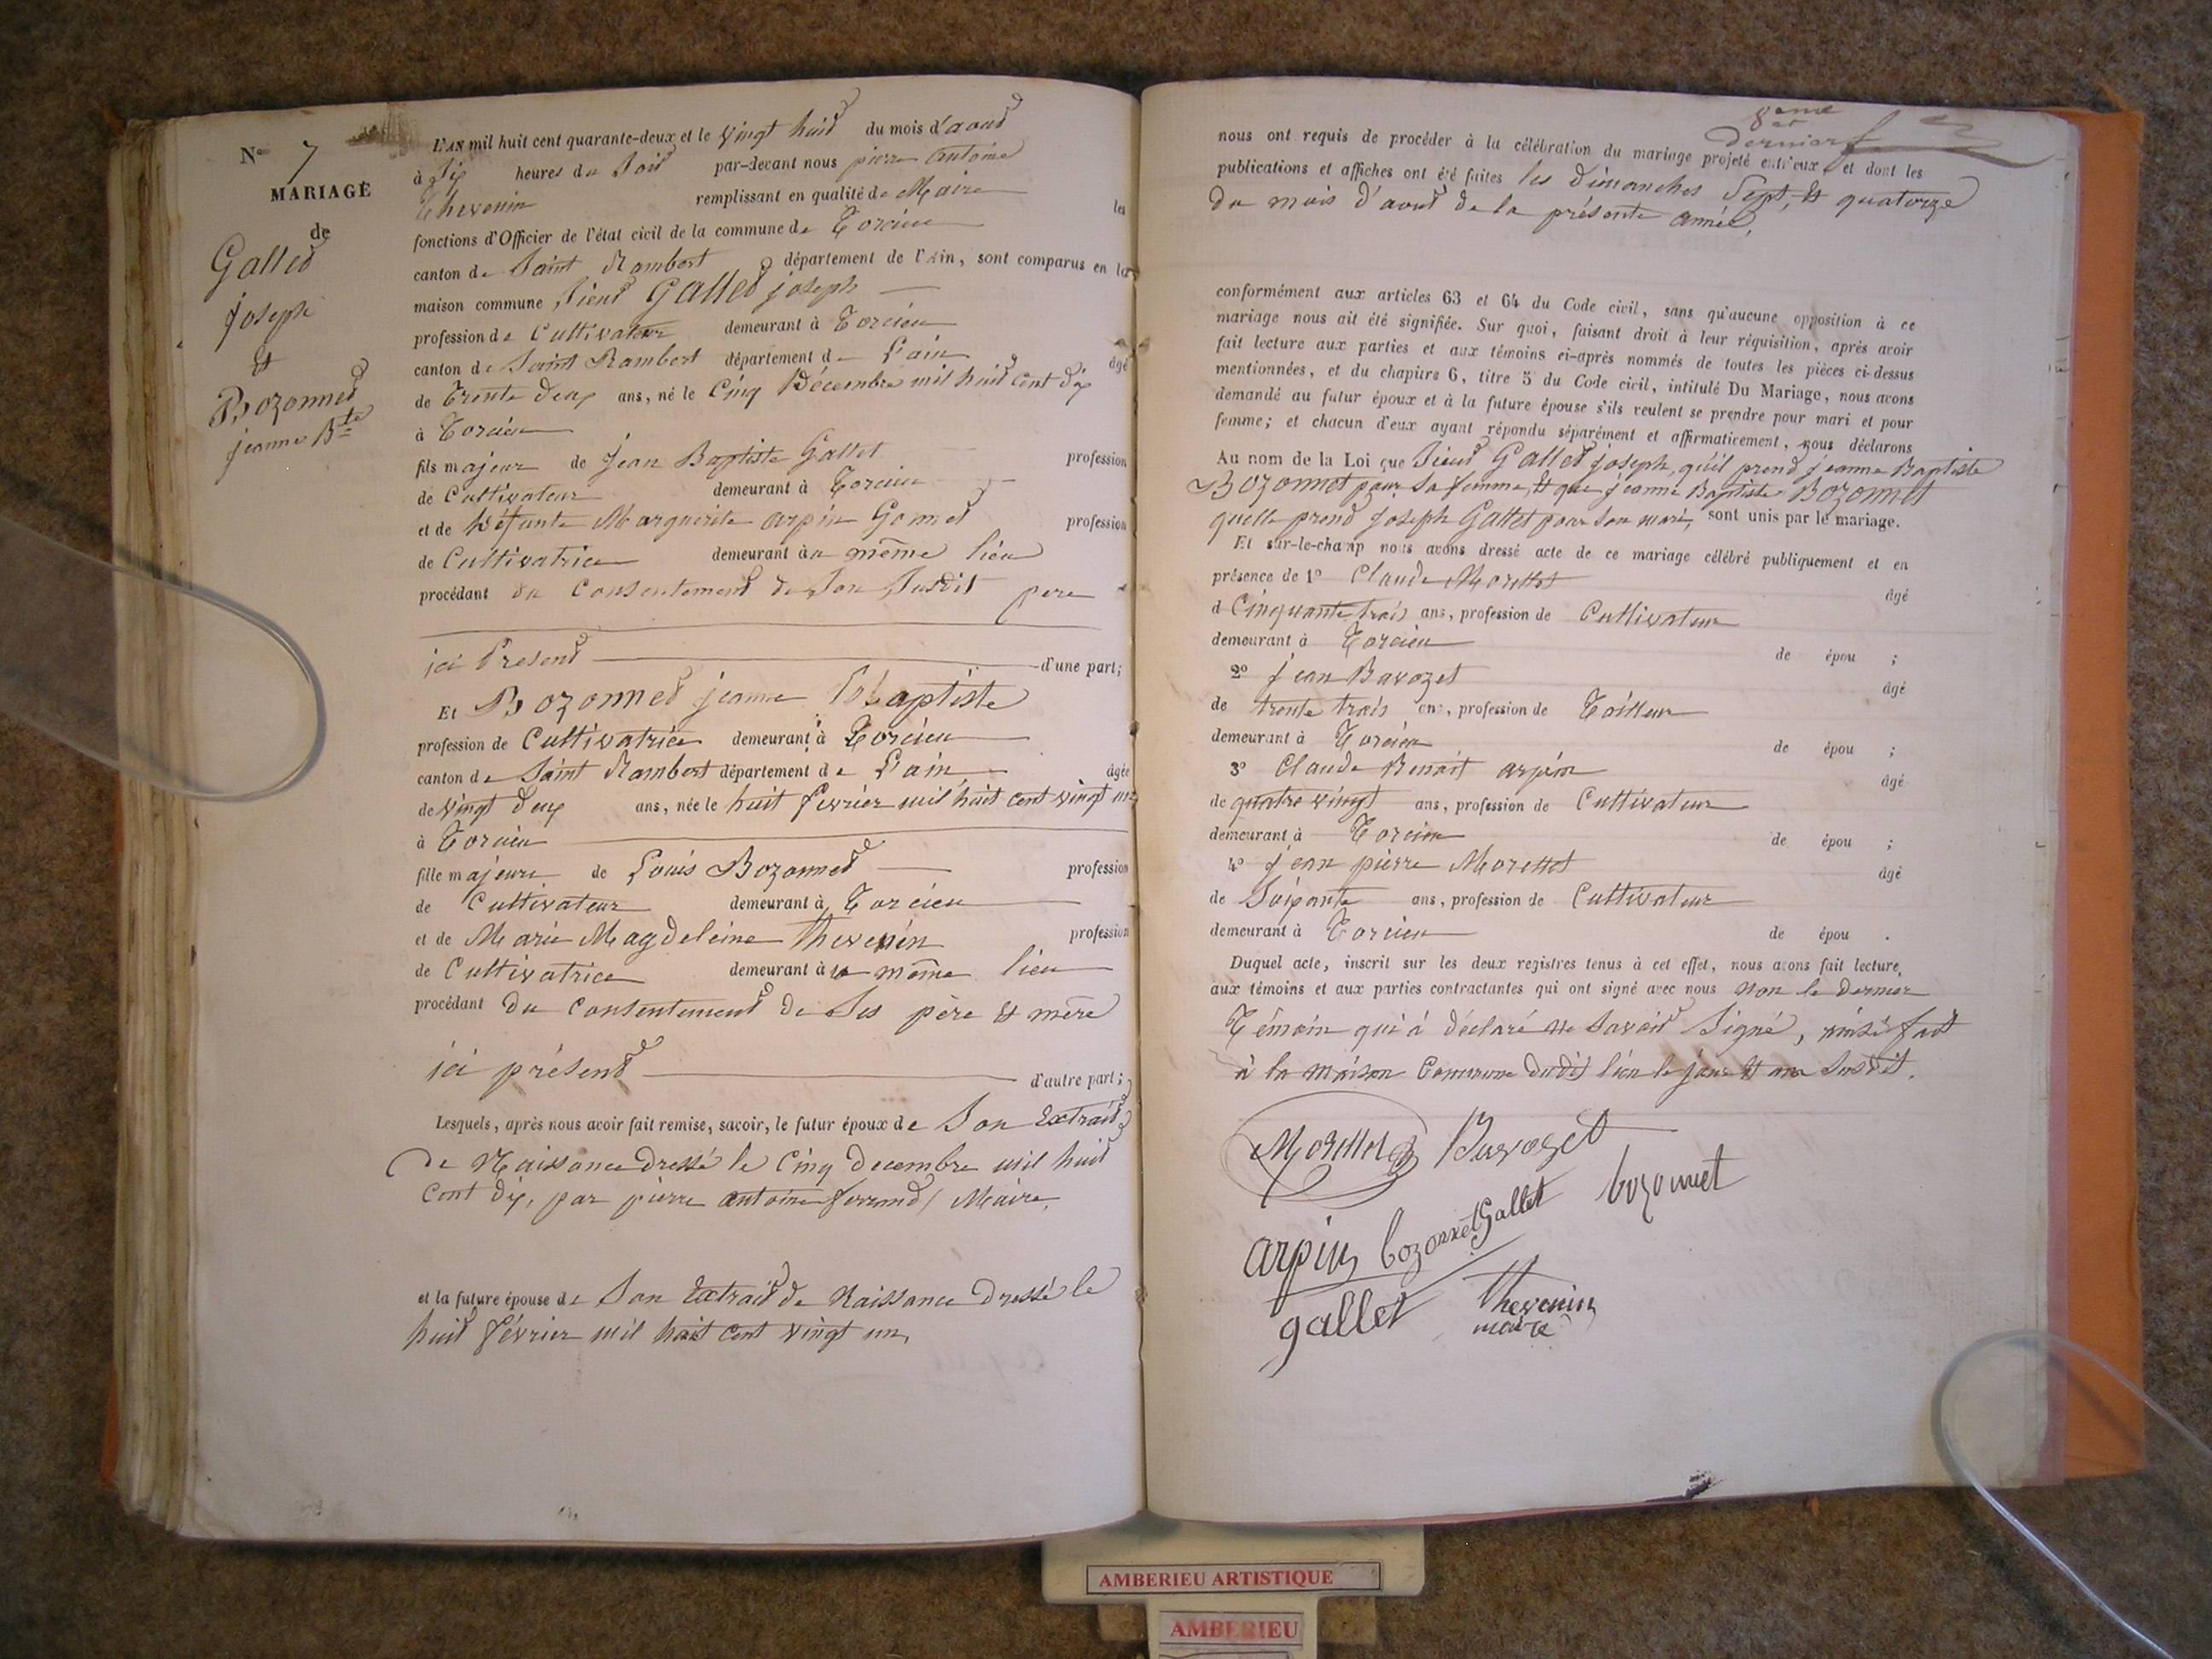 N° 7
MARIAGE
de
Gallet
joseph
&
Bozonnet
jeanne Bte
L'AN mil huit cent quarante-deux et le vingt huit du mois d'aout
à six heures du Soir par-devant nous pierre antoine
thevenin remplissant en qualité de Maire les
fonctions d'Officier de l'état civil de la commune de Torcieu
canton de Saint Rambert département de l'Ain, sont comparus en la
maison commune Sieur Gallet joseph
profession de Cultivateur demeurant à Torcieu
canton de Saint Rambert département de L'ain âgé
de Trente deux ans, né le Cinq Décembre mil huit cent dix
à Torcieu
fils majeur de Jean Baptiste Gallet profession
de Cultivateur demeurant à Torcieu
et de défunte Marguerite arpin Gonnet profession
de Cultivatrice demeurant au même lieu
procédant du Consentement de Son Susdit pere
ici Present d'une part;
Et Bozonnet jeanne Baptiste
profession de Cultivatrice demeurant à Torcieu
canton de Saint Rambert département de L'ain âgée
de vingt deux ans, née le huit fevrier mil huit cent vingt un
à Torcieu
fille majeure de Louis Bozonnet profession
de Cultivateur demeurant à Torcieu
et de Marie Magdeleine thevenin profession
de Cultivatrice demeurant au même lieu
procédant du Consentement de Ses père & mère
ici présent d'autre part;
Lesquels, après nous avoir fait remise, savoir, le futur époux de Son Extrait
de Naissance dressé le Cinq decembre mil huit
Cent dix, par pierre antoine ferrand, Maire,
et la future épouse de Son Extrait de Naissance dressé le
huit février mil huit cent vingt un,
8eme
et
dernier f
nous ont requis de procéder à la célébration du mariage projeté entr'eux, et dont les
publications et affiches ont été faites les dimanches Sept, & quatorze
du mois d'aout de la présente année,
conformément aux articles 63 et 64 du Code civil, sans qu'aucune opposition à ce
mariage nous ait été signifiée. Sur quoi, faisant droit à leur réquisition, après avoir
fait lecture aux parties et aux témoins ci-après nommés de toutes les pièces ci-dessus
mentionnées, et du chapitre 6, titre 5 du Code civil, intitulé Du Mariage, nous avons
demandé au futur époux et à la future épouse s'ils veulent se prendre pour mari et pour
femme; et chacun d'eux ayant répondu séparément et affirmativement, nous déclarons
Au nom de la Loi que Sieur Gallet joseph, qu'il prend jeanne Baptiste
Bozonnet pour Sa femme, & que jeanne Baptiste Bozonnet
quelle prend joseph Gallet pour Son mari, sont unis par le mariage.
Et sur-le-champ nous avons dressé acte de ce mariage célébré publiquement et en
présence de 1° Claude Morettet âgé
d Cinquante trois ans, profession de Cultivateur
demeurant à Torcieu de épou ;
2° jean Bavozet âgé
de trente trois ans, profession de Tailleur
demeurant à Torcieu de épou ;
3° Claude Benoit arpin âgé
de quatre vingt ans, profession de Cultivateur
demeurant à Torcieu de épou ;
4° jean pierre Morettet âgé
de Soixante ans, profession de Cultivateur
demeurant à Torcieu de épou .
Duquel acte, inscrit sur les deux registres tenus à cet effet, nous avons fait lecture
aux témoins et aux parties contractantes qui ont signé avec nous non le dernier
Témoin qui à déclaré ne Savoir Signé, ainsi fait
à la maison Commune dudit lieu le jour & an Susdit.
Morettet Bavozet
arpin bozonnet Gallet bozonnet
gallet thevenin
maire
AMBERIEU ARTISTIQUE
AMBERIEU